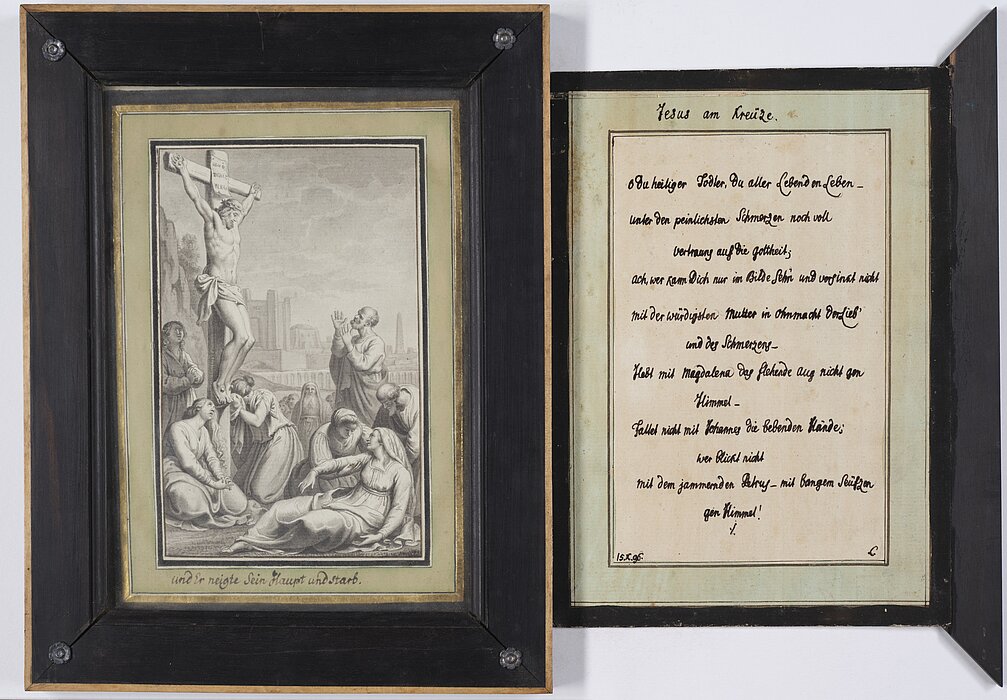 und Er neigte Sein Haupt und starb.
Jesus am Kreüze.
o Du heiliger Todter, Du aller Lebenden Leben_
unter den peinlichsten Schmerzen noch voll
vertrauns auf die Gottheit;
ach, wer kann Dich nur im Bilde Sehn und versinkt nicht
mit der würdigsten Mutter in ohnmacht der Lieb'
und des Schmerzens_
Hebt mit Magdalena das flehende Aug nicht gen
Himmel_
Faltet nicht mit Johannes die bebenden Hände;
wer blickt nicht
mit dem jammernden Petrus_ mit bangem Seüfzen
gen Himmel!
15.X.96.
L